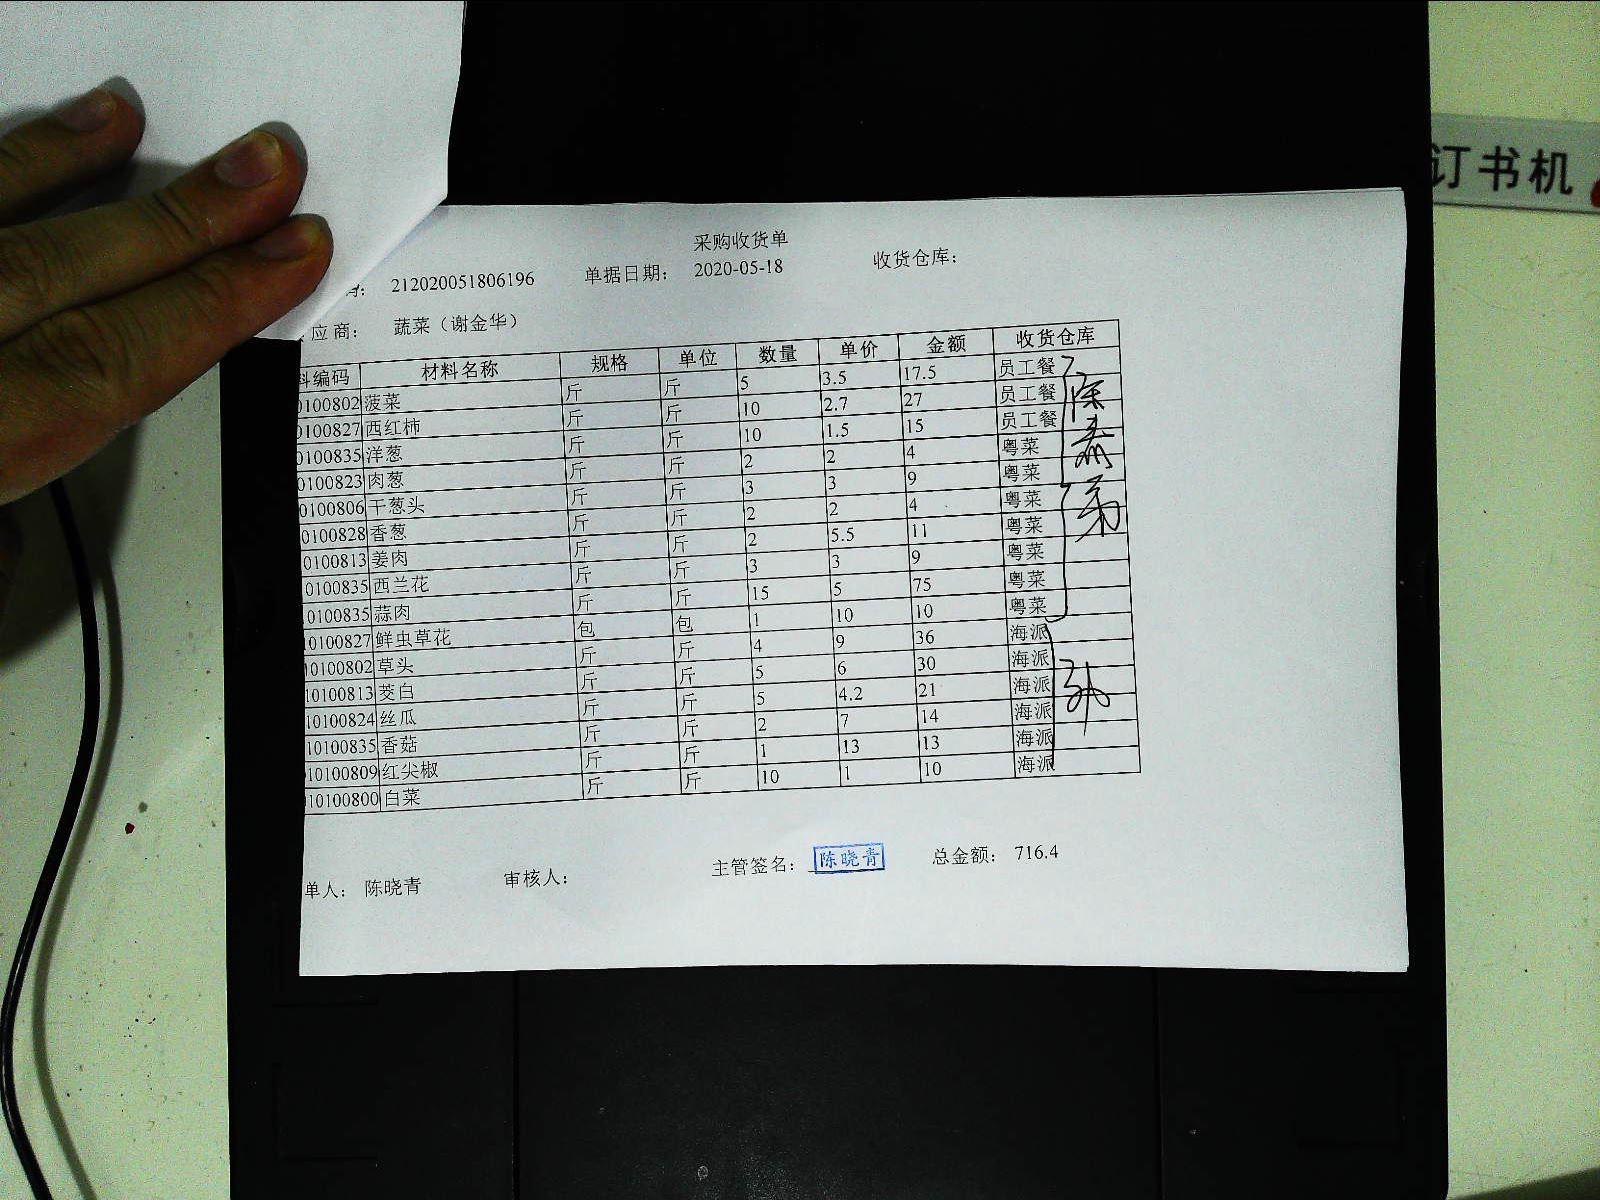 订书机
采购收货单
212020051806196 单据日期： 2020-05-18 收货仓库：
应商： 蔬菜（谢金华）
料编码 材料名称 规格 单位 数量 单价 金额 收货仓库
0100802 菠菜 斤 斤 5 3.5 17.5 员工餐
0100827 西红柿 斤 斤 10 2.7 27 员工餐
0100835 洋葱 斤 斤 10 1.5 15 员工餐
0100823 肉葱 斤 斤 2 2 4 粤菜
0100806 干葱头 斤 斤 3 3 9 粤菜
0100828 香葱 斤 斤 2 2 4 粤菜
0100813 姜肉 斤 斤 2 5.5 11 粤菜
0100835 西兰花 斤 斤 3 3 9 粤菜
0100835 蒜肉 斤 斤 15 5 75 粤菜
10100827 鲜虫草花 包 包 1 10 10 粤菜
10100802 草头 斤 斤 4 9 36 海派
10100813 茭白 斤 斤 5 6 30 海派
10100824 丝瓜 斤 斤 5 4.2 21 海派
10100835 香菇 斤 斤 2 7 14 海派
10100809 红尖椒 斤 斤 1 13 13 海派
10100800 白菜 斤 斤 10 1 10 海派
单人： 陈晓青 审核人： 主管签名： 陈晓青 总金额： 716.4